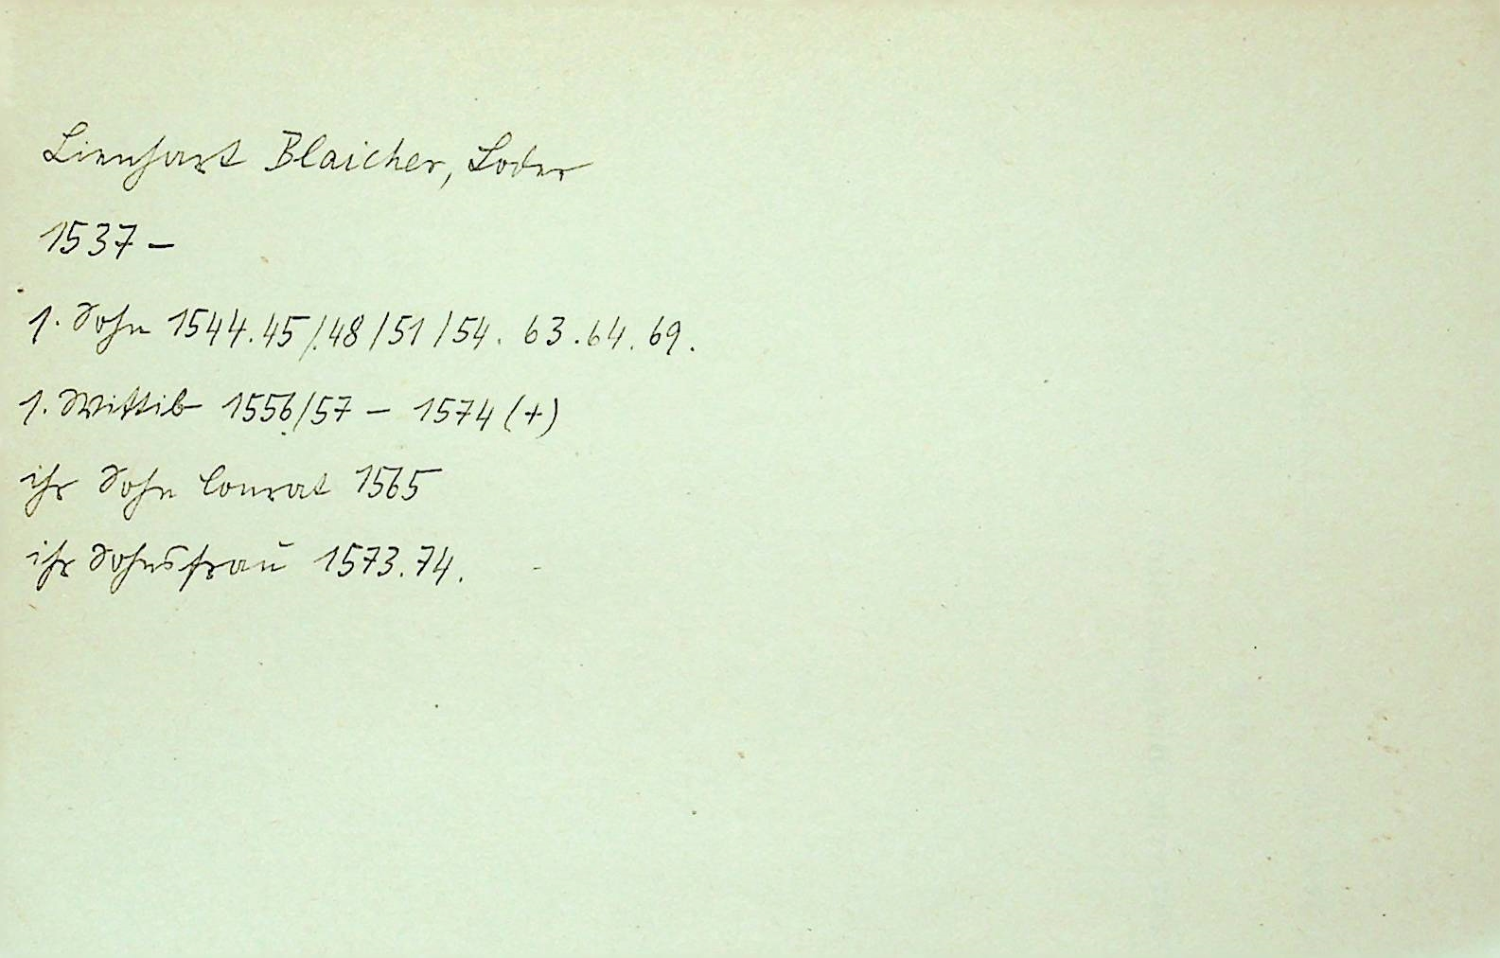 Lienhart Blaicher, Loder
1537 –
1. Sohn 1544.45/.48/51/54. 63.64.69.
1. Wittib 1556/57 – 1574 (+)
ihr Sohn Conrat 1565
ihr Sohnsfrau 1573.74.